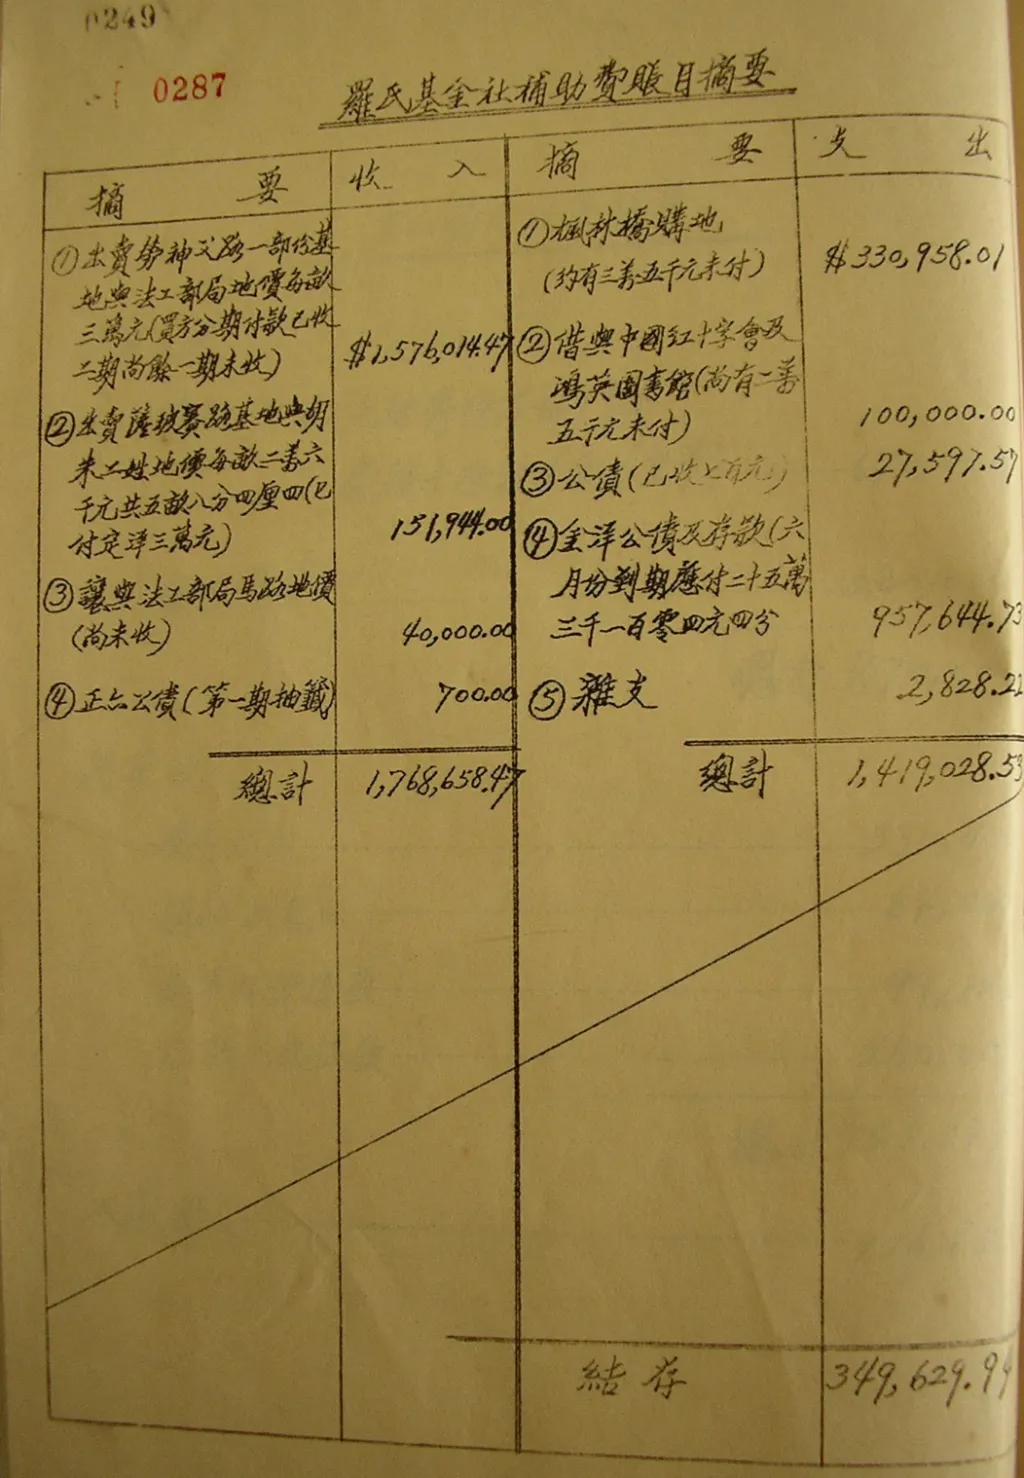 0249
0287
羅氏基金社補助費賬目摘要
摘 要
收 入
摘 要
支 出
①出賣勞神父路一部份基
地與法工部局地價每畝
三萬元(買方分期付款已收
二期尚餘一期未收)
$1,576,014.47
②出賣薩坡賽路基地與胡
朱二姓地價每畝二萬六
千元共五畝八分四厘四(已
付定洋三萬元)
151,944.00
③讓與法工部局馬路地價
(尚未收)
40,000.00
④正六公債(第一期抽籤)
700.00
總計 1,768,658.47
①楓林橋購地
(約有三萬五千元未付)
$330,958.01
②借與中國紅十字會及
鴻英圖書館(尚有二萬
五千元未付)
100,000.00
③公債(已收七百元)
27,597.57
④金洋公債及存款(六
月份到期應付二十五萬
三千一百零四元四分
957,644.73
⑤雜支
2,828.22
總計 1,419,028.53
結存 349,629.94